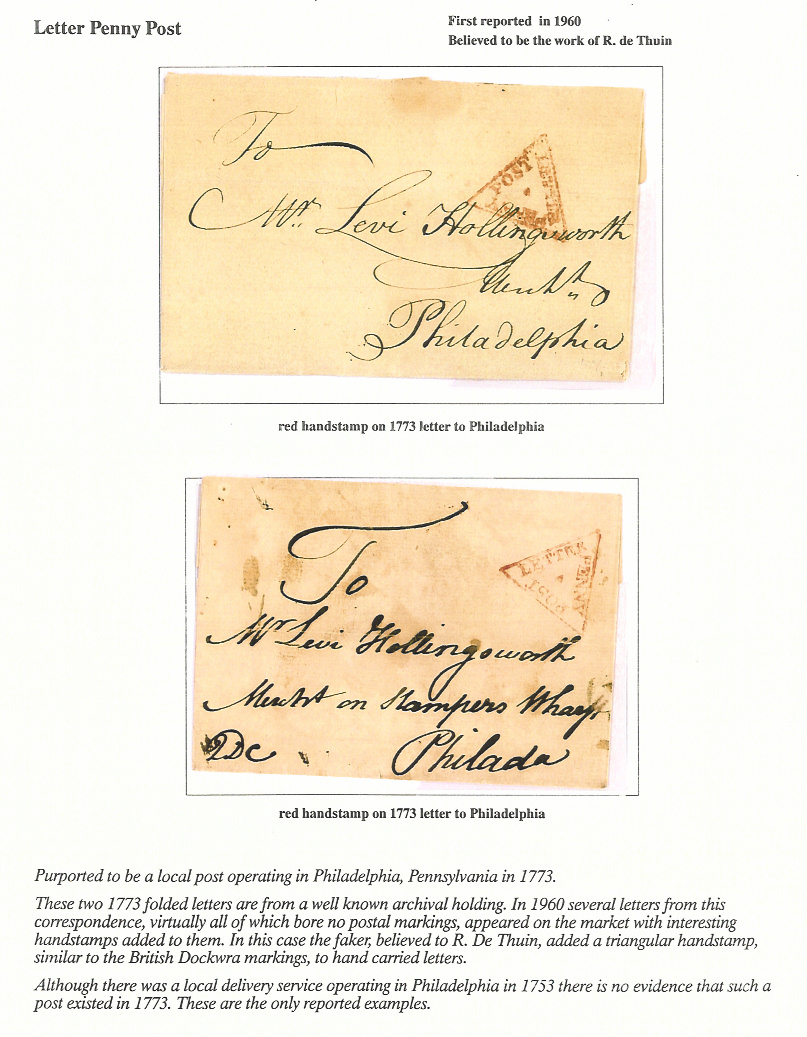 Letter Penny Post
First reported in 1960
Believed to be the work of R. de Thuin
To
POST
Mr. Levi Hollingsworth
Philadelphia
red handstamp on 1773 letter to Philadelphia
To
LETTER
PENNY
POST
Mr Levi Hollingsworth
Mercht on Stampers Wharf
Philada
red handstamp on 1773 letter to Philadelphia
Purported to be a local post operating in Philadelphia, Pennsylvania in 1773.
These two 1773 folded letters are from a well known archival holding. In 1960 several letters from this
correspondence, virtually all of which bore no postal markings, appeared on the market with interesting
handstamps added to them. In this case the faker, believed to R. De Thuin, added a triangular handstamp,
similar to the British Dockwra markings, to hand carried letters.
Although there was a local delivery service operating in Philadelphia in 1753 there is no evidence that such a
post existed in 1773. These are the only reported examples.